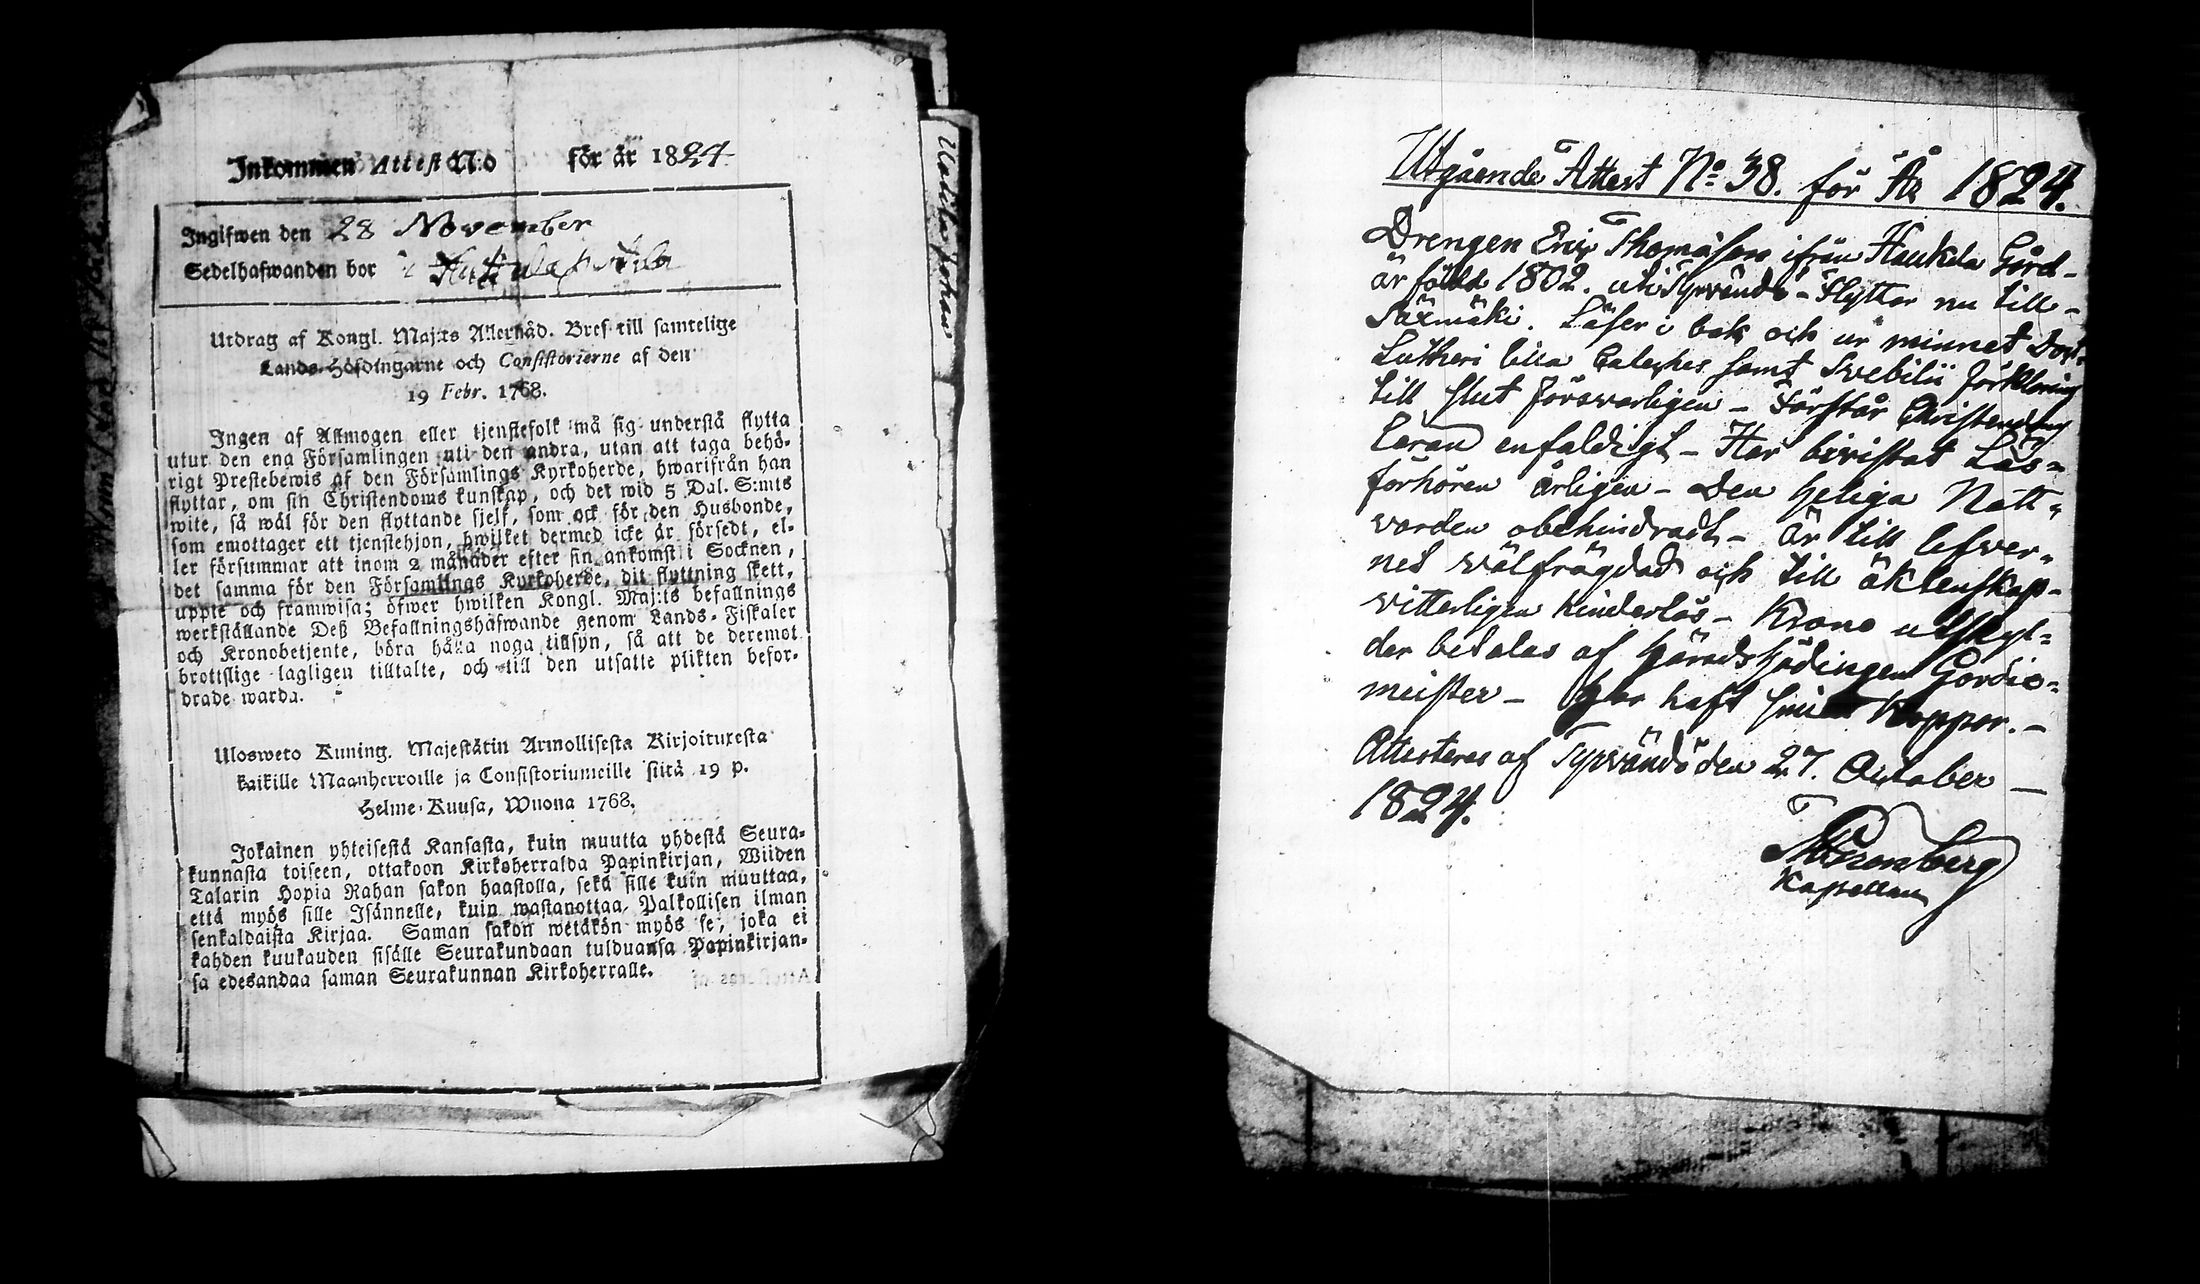 Inkommen Attest N:o för år 1824
Ingifwen den 28 November
Sedelhafwanden bor i
Utdrag af Kongl. Maj:ts Allernåd. Bref till samtelige
Lands-Höfdingarne och Consistorierne af den
19 Febr. 1768.
Ingen af Allmogen eller tjenstefolk må sig understå flytta
utur den ena Församlingen uti den andra, utan att taga behö-
rigt Prestebewis af den Församlings Kyrkoherde, hwarifrån han
flyttar, om sin Christendoms kunskap, och det wid 5 Dal. S:mts
wite, så wäl för den flyttande sjelf, som ock för den Husbonde,
som emottager ett tjenstehjon, hwilket dermed icke är försedt, el-
ler försummar att inom 2 månader efter sin ankomst i Socknen,
det samma för den Församlings Kyrkoherde, dit flyttning skett,
uppte och framwisa; öfwer hwilken Kongl. Maj:ts befallnings
werkställande Deß Befallningshafwande genom Lands-Fiskaler
och Kronobetjente, böra hålla noga tillsyn, så att de deremot
brottslige lagligen tilltalte, och till den utsatte plikten befor-
drade warda.
Ulosweto Kuning. Majestätin Armollisesta Kirjoituxesta
kaikille Maanherroille ja Consistoriumeille siitä 19 p.
Helme-Kuusa, Wuona 1768.
Jokainen yhteisestä Kansasta, kuin muutta yhdestä Seura-
kunnasta toiseen, ottakoon Kirkoherralda Papinkirjan, Wiiden
Talarin Hopia Rahan sakon haastolla, sekä sille kuin muuttaa,
että myös sille Isännelle, kuin wastanottaa Palkollisen ilman
senkaldaista Kirjaa. Saman sakon wetäkön myös se, joka ei
kahden kuukauden sisälle Seurakundaan tulduansa Papinkirjan-
sa edesandaa saman Seurakunnan Kirkoherralle.
Johan
Utgående Attest No 38. för År 1824.
Drengen Eric Thomasson ifrån Haukela Gård -
är född 1802. uti Tyrvändö - Flyttar nu till -
Särmäki. Läser i bok och ur minnet Doct:
Lutheri lilla Cateches samt Svebilii förklaring
till slut försvarligen - Förstår Christendoms
Läran enfaldigt - Har bivistat Läs=
förhören årligen - Den Heliga Natt=
varden obehindradt - Är till lefver=
net wälfrägdad och till äktenskap -
vitterligen hinderlös - Krono utskyl=
der betalas af Häradshöfdingen Gordie=
meister - Har haft Koppor. -
Attesteras af Tyrvändö den 27. October
1824.
Kapellan